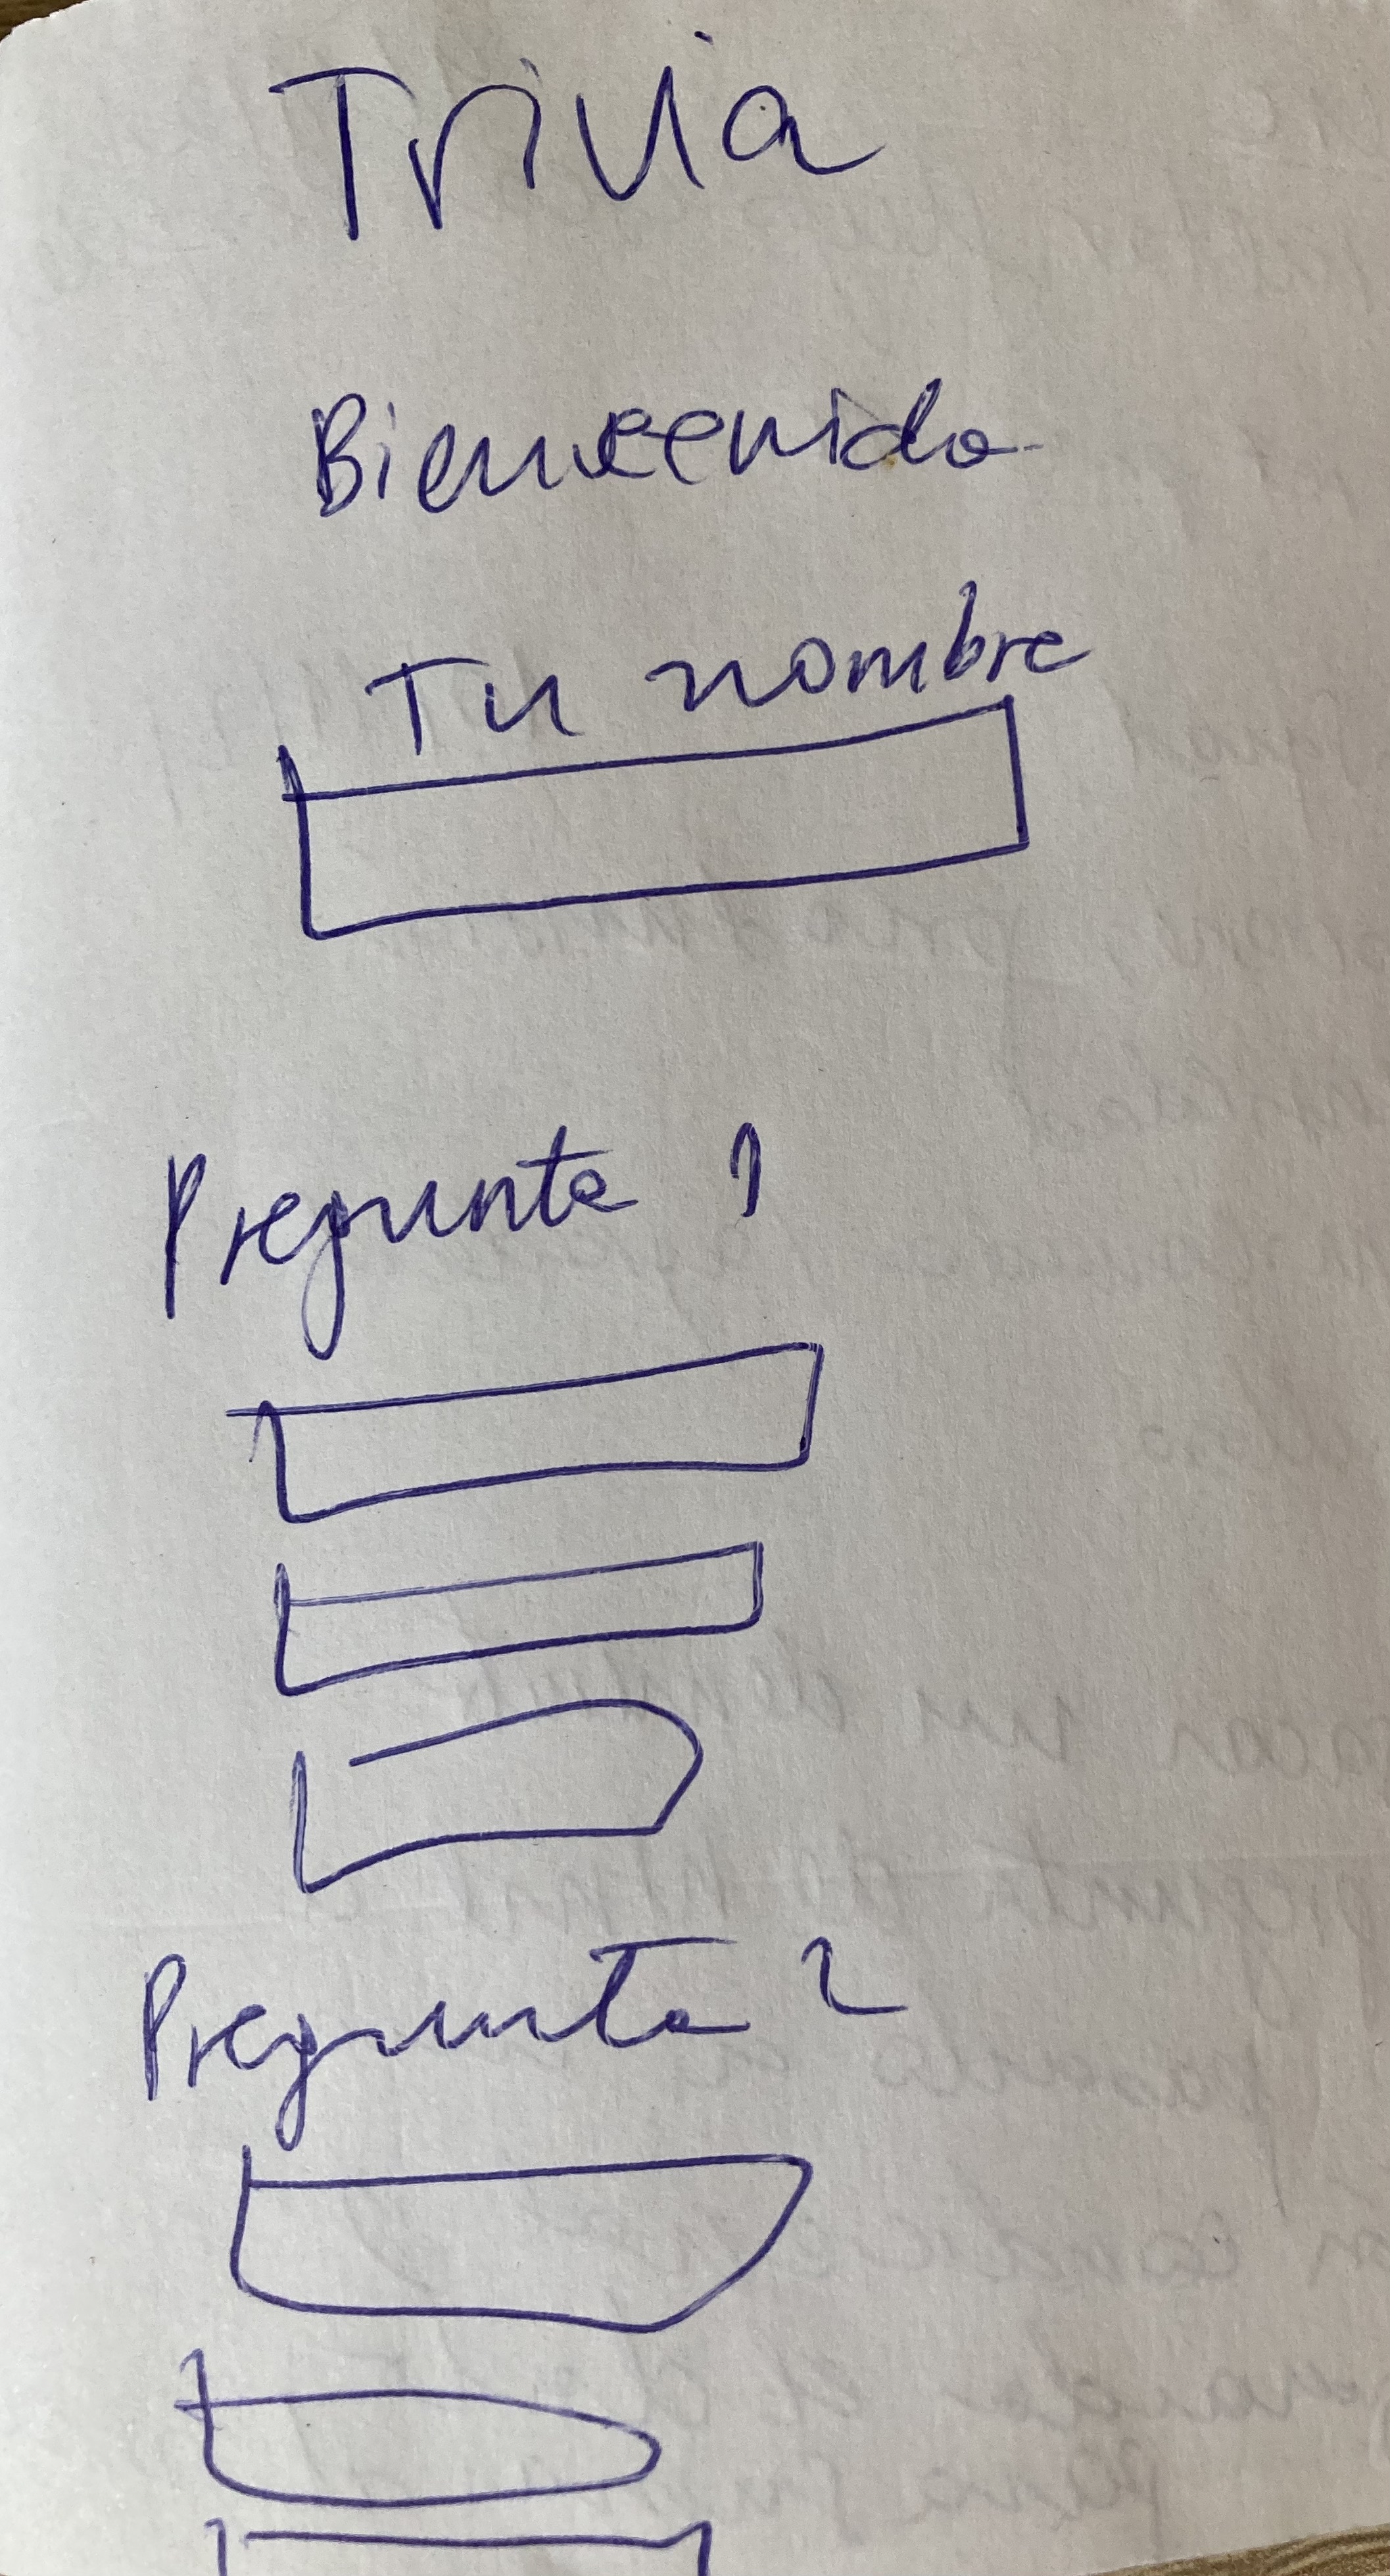 Trivia
Bienveenido
Tu nombre
Pregunta 1
Pregunta 2